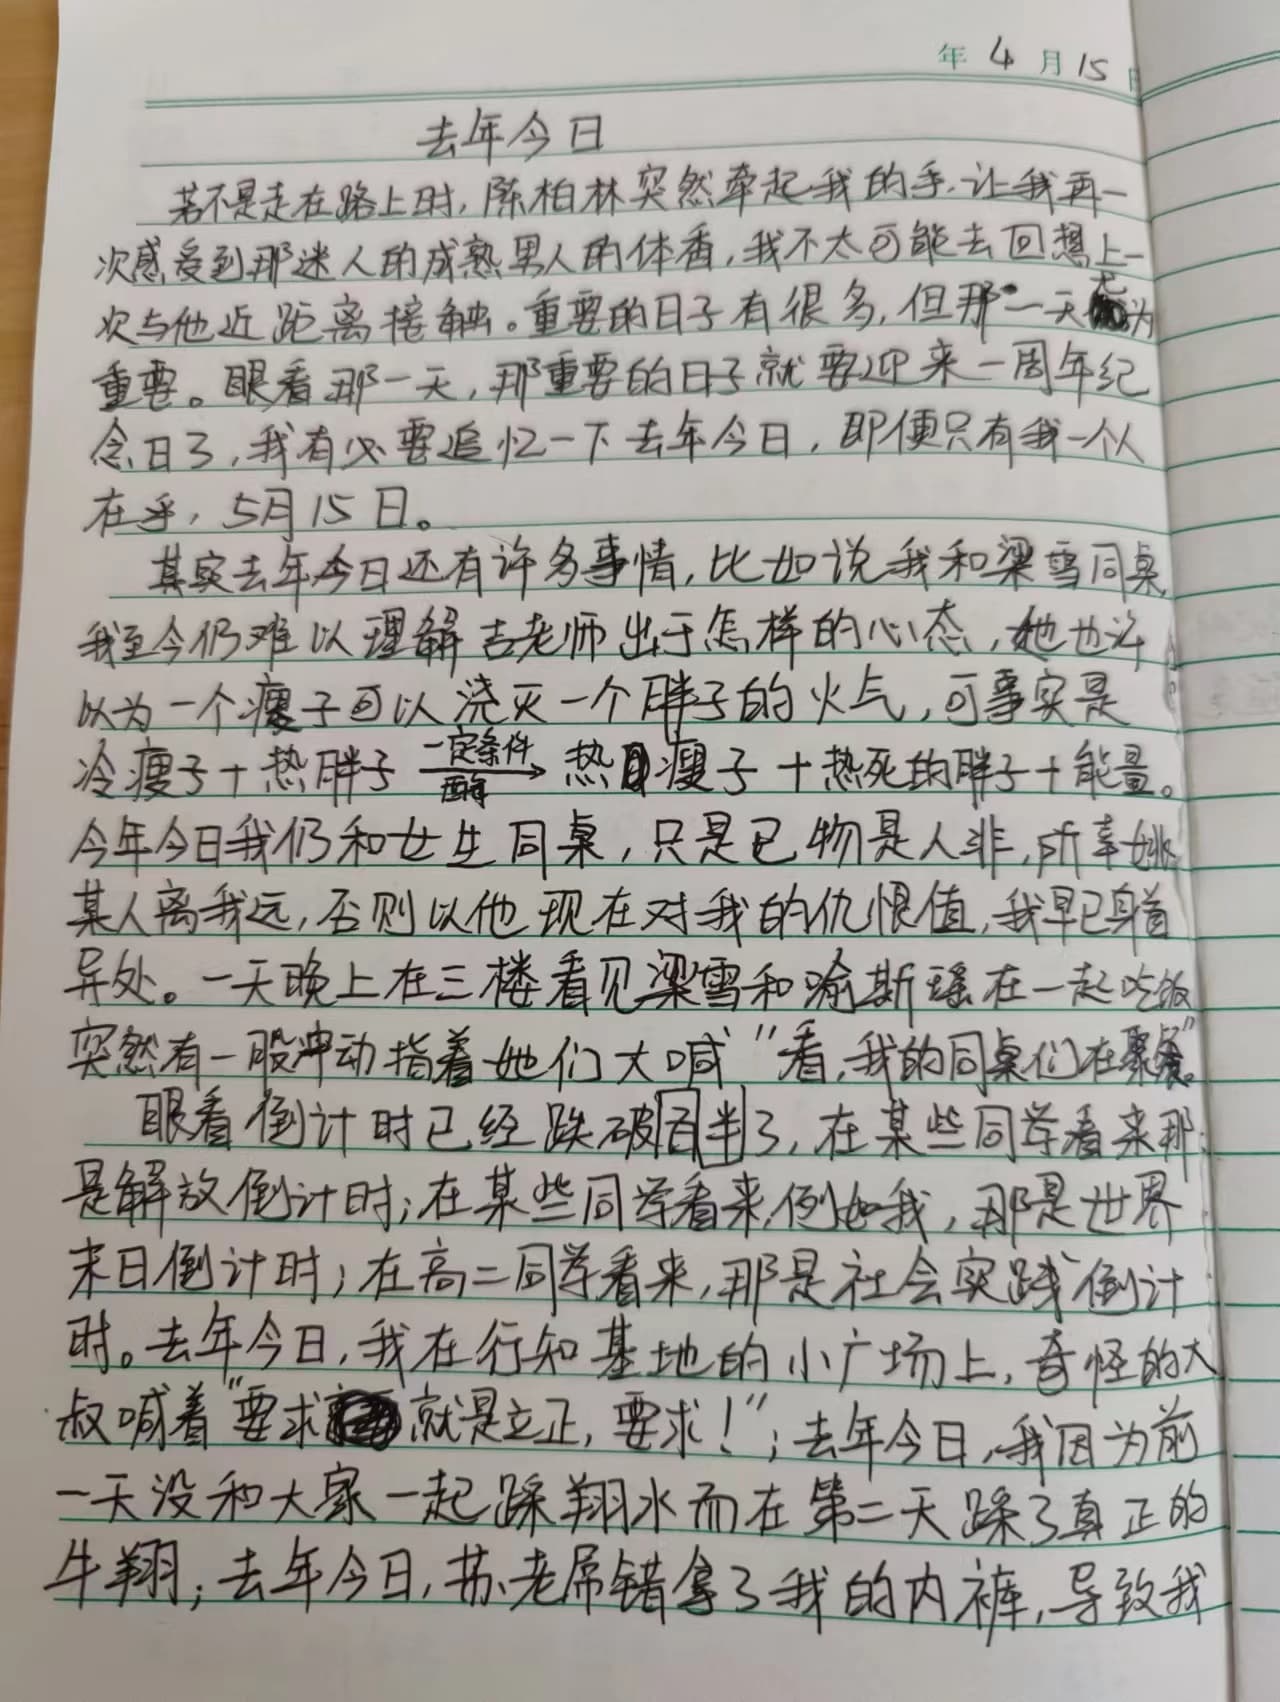 年 4 月 15 日
去年今日
若不是走在路上时，陈柏林突然牵起我的手，让我再一
次感受到那迷人的成熟男人的体香，我不太可能去回想上一
次与他近距离接触。重要的日子有很多，但那一天尤为
重要。眼看那一天，那重要的日子就要迎来一周年纪
念日了，我有必要追忆一下去年今日，即便只有我一个人
在乎，5月15日。
其实去年今日还有许多事情，比如说我和梁雪同桌
我至今仍难以理解吉老师出于怎样的心态，她也许
以为一个瘦子可以浇灭一个胖子的火气，可事实是
冷瘦子＋热胖子 一定条件 酶 → 热瘦子＋热死的胖子＋能量。
今年今日我仍和女生同桌，只是已物是人非，所幸姚
某人离我远，否则以他现在对我的仇恨值，我早已身首
异处。一天晚上在三楼看见梁雪和喻斯瑶在一起吃饭
突然有一股冲动指着她们大喊“看，我的同桌们在聚餐”。
眼看倒计时已经跌破百半了，在某些同学看来那
是解放倒计时；在某些同学看来，例如我，那是世界
末日倒计时；在高二同学看来，那是社会实践倒计
时。去年今日，我在行知基地的小广场上，奇怪的大
叔喊着“要求就是立正，要求！”；去年今日，我因为前
一天没和大家一起踩翔水而在第二天踩了真正的
牛翔；去年今日，苏老屌错拿了我的内裤，导致我